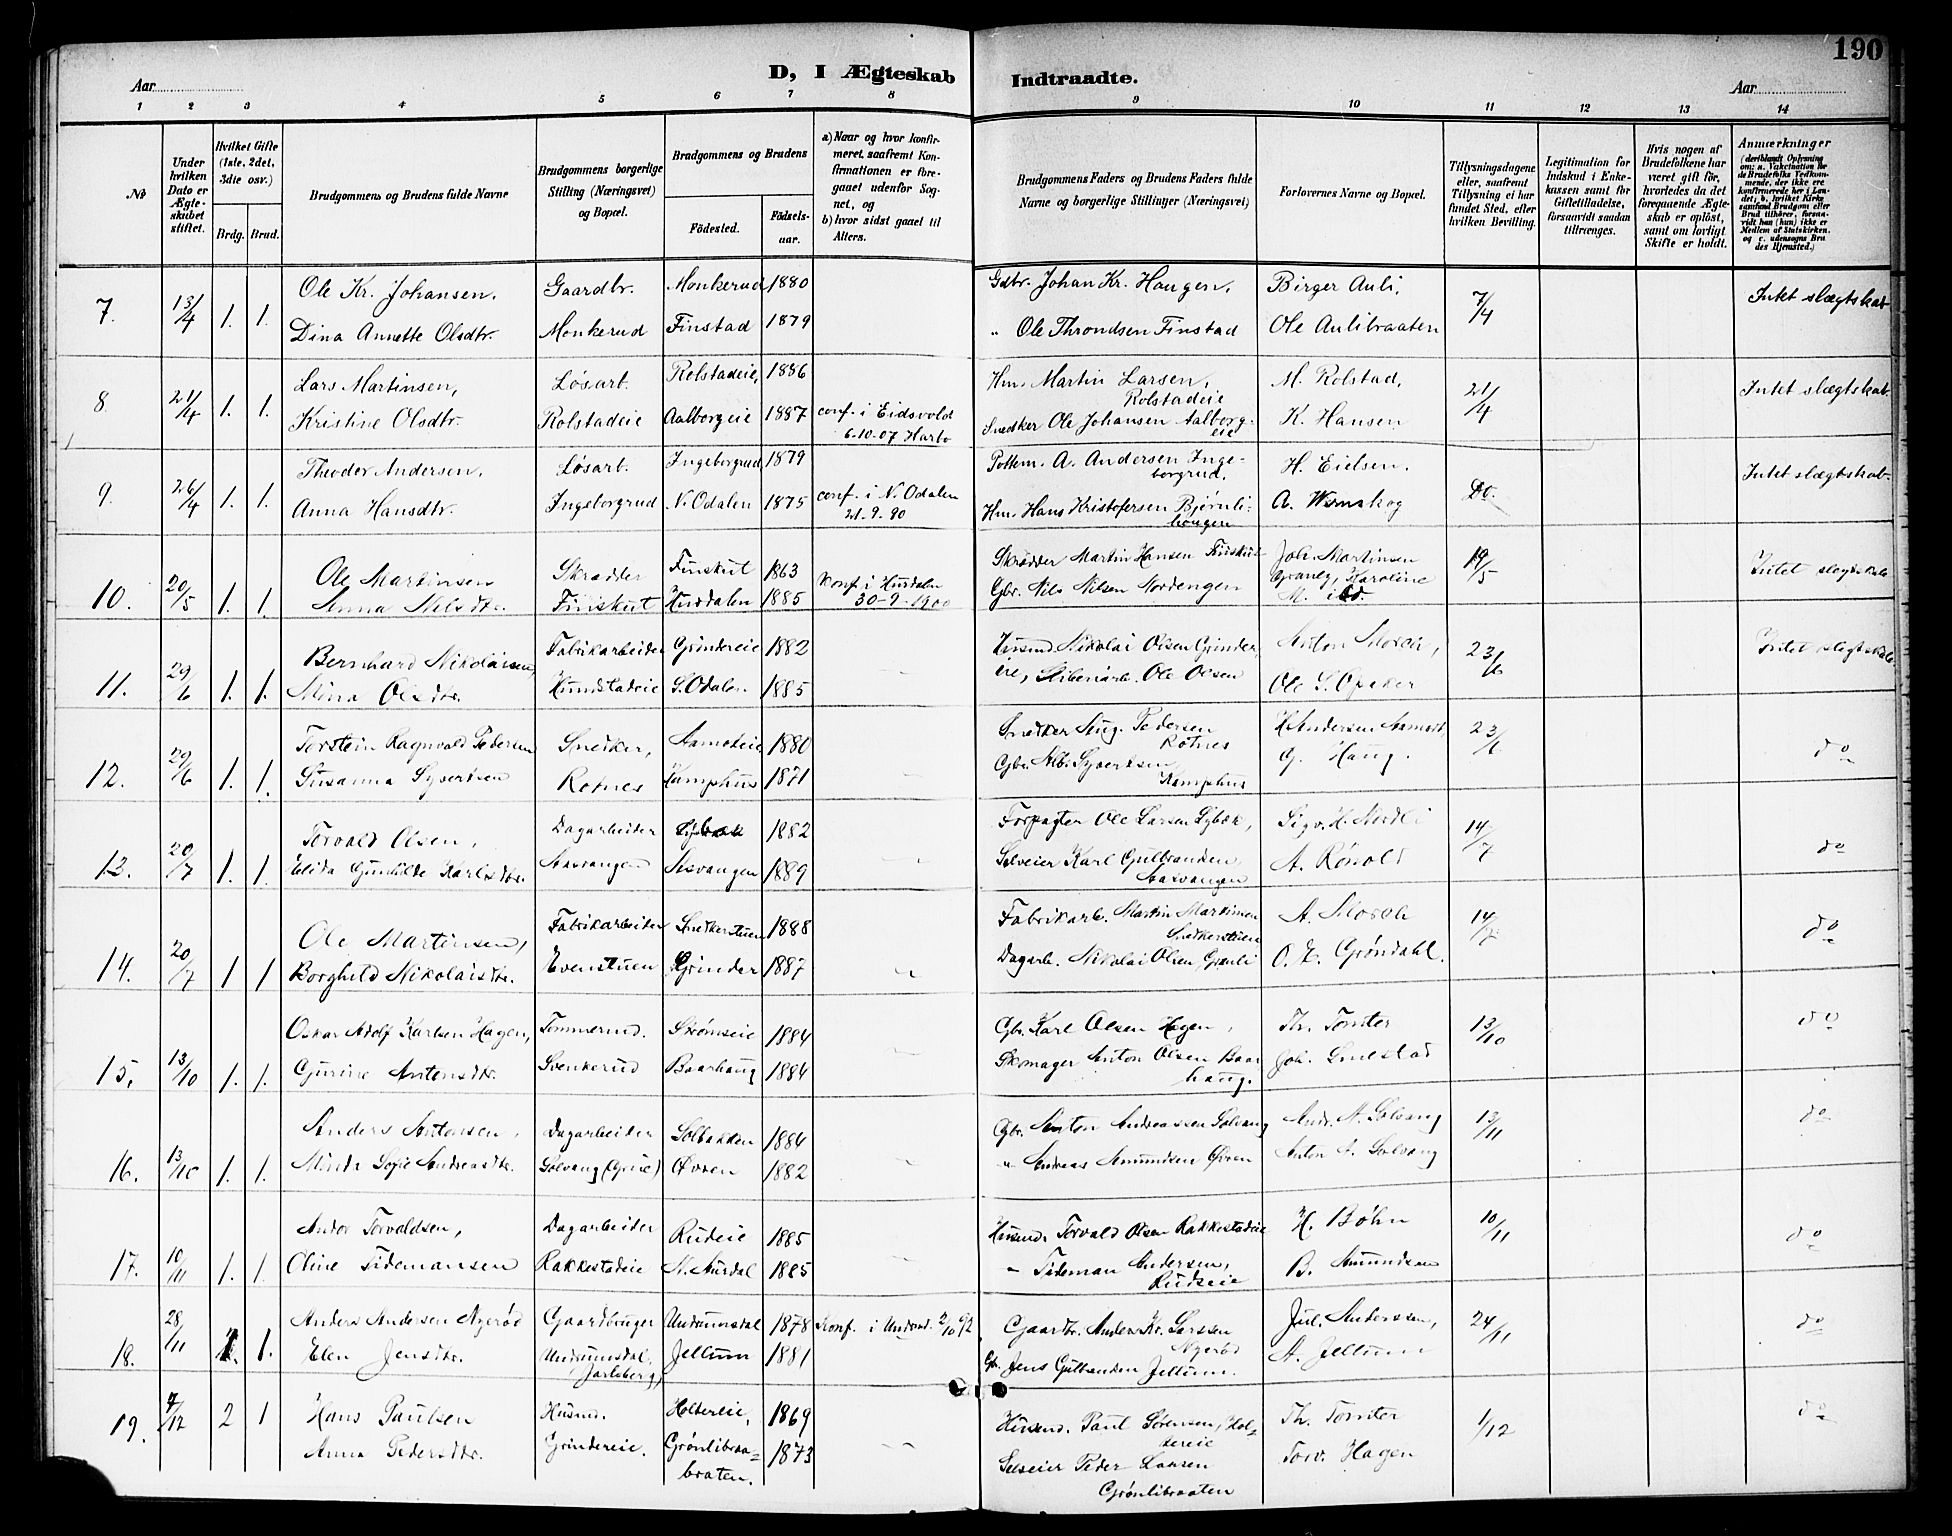 190
D, I Ægteskab Indtraadte.
Aar
Aar
1 2 3 4 5 6 7 8 9 10 11 12 13 14
No
Under hvilken Dato er Ægteskabet stiftet.
Hvilket Gifte (1ste, 2det, 3die osv.)
Brdg. Brud.
Brudgommens og Brudens fulde Navne
Brudgommens borgerlige Stilling (Næringsvei) og Bopæl.
Brudgommens og Brudens
Födested.
Födselsaar.
a) Naar og hvor konfirmeret, saafremt Konfirmationen er foregaaet udenfor Sognet, og
b) hvor sidst gaaet til Alters.
Brudgommens Faders og Brudens Faders fulde Navne og borgerlige Stillinger (Næringsvei)
Forlovernes Navne og Bopæl.
Tillysningsdagene eller, saafremt Tillysning ei har fundet Sted, efter hvilken Bevilling.
Legitimation for Indskud i Enkekassen samt for Giftetilladelse, forsaavidt saadan tiltrænges.
Hvis nogen af Brudefolkene har været gift för, hvorledes da det foregaaende Ægteskab er oplöst, samt om lovligt Skifte er holdt.
Anmærkninger
7. 13/4 1. 1. Ole Kr. Johansen, Gaardbr. Monkerud 1880 Gdbr. Johan Kr. Haugen, Birger Auli, 7/4 Intet slægtskab
Dina Annette Olsdtr. Monkerud Finstad 1879 " Ole Throndsen Finstad Ole Aulibraaten
8. 21/4 1. 1. Lars Martinsen, Løsarb. Rolstadeie, 1886 Hm. Martin Larsen, Rolstadeie M. Rolstad, 21/4 Intet slægtskab.
Kristine Olsdtr. Rolstadeie Aalborgeie 1887 conf. i Eidsvold 6.10.07 Snedker Ole Johansen Aalborgeie K. Hansen
9. 26/4 1. 1. Theodor Andersen, Løsarb. Ingeborgrud 1879 Pottem. A. Andersen Ingeborgrud. H. Eielsen. Do. Intet slægtskab.
Anna Hansdtr. Ingeborgrud N. Odalen 1875 conf. i N. Odalen 21.9.90 Hm. Hans Kristofersen Bjørnlihaugen A. Wamskog
10. 20/5 1. 1. Ole Martinsen Skrædder Finskut 1863 Skrædder Martin Hansen Finskut Joh. Martinsen 19/5 Intet slegtskab
Anna Nilsdtr. Finskut Hurdalen 1885 Konf. i Hurdalen 30-9-1900 Gbr. Nils Nilsen Nordengen Karoline
11. 29/6 1. 1. Bernhard Nikolaisen, Fabrikarbeider Grindereie 1882 Husmd. Nikolai Olsen Grindereie, Anton 23/6 Intet slegtskab
Mina Olsdtr. Hundstadeie S. Odalen 1885 Ole Olsen Ole
12. 29/6 1. 1. Torstein Ragnvald Pedersen Snedker, 1880 Snedker Aug. Pedersen Rotnes H. Andersen 23/6 do
Susanna Syvertsen Rotnes Kamphus 1871 Gbr. Alb. Syvertsen Kamphus G. Haug.
13. 20/7 1. 1. Torvald Olsen, Dagarbeider Lybæk 1882 Forpagter Ole Larsen Lybæk, Sigv. H. Nordli 14/7 do
Elida Gunhilde Karlsdtr. Aasvangen Aasvangen 1889 Selveier Karl Gulbrandsen Aasvangen A. Rönold
14. 20/7 1 1 Ole Martinsen, Fabrikarbeider Snekkerstuen 1888 Fabrikarb. Martin Martinsen Snekkerstuen 14/7 do
Borghild Nikolaisdtr. Evenstuen Grinder 1887 Dagarb. Nikolai Olsen, Granli O. E. Grøndahl.
15. 13/10 1. 1. Oskar Adolf Karlsen Hagen, Tømmermd. Strømseie 1884 Gbr. Karl Olsen Hagen, Th. Tomter 13/10 do
Gurine Antonsdtr. Svenkerud Baarhaug 1884 Skomager Anton Olsen Baarhaug. Joh. Smestad
16. 13/10 1. 1. Anders Antonsen, Dagarbeider Solbakken 1884 Gbr. Anton Andreassen Solvang Andr. A. Solvang 13/11 do
Minda Sofie Andreasdtr. Solvang (Grue) Øvren 1882 " Andreas Amundsen Øvren Anton A. Solvang
17. 10/11 1. 1. Andor Torvaldsen, Dagarbeider Rudeie 1885 Husmd. Torvald Olsen Rakkestadeie H. Bøhn 10/11 do
Oline Tidemansen Rakkestadeie N. Aurdal 1885 " Tideman Andersen, Rudseie B. Amundsen
18. 28/11 1. 1. Anders Andersen Nyerød Gaardbruger Undrumsdal 1878 Konf. i Undrmd. 2/10 92 Gaardbr. Anders Kr. Larssen Nyerød Jul. Anderssen, 24/11 do
Elen Jensdtr. Undrumsdal, Jarlsberg, Jellum 1881 Gbr. Jens Gulbrandsen Jellum. A. Jellum
19. 7/12 2 1 Hans Paulsen Husmd. Holtereie, 1869 Husmd. Paul Sørensen, Holtereie Th. Tomter 1/12 do
Anna Pedersdtr. Grindereie. Grønlibraabraten. 1873 Selveier Peder Larsen Grønlibraaten Torv. Hagen